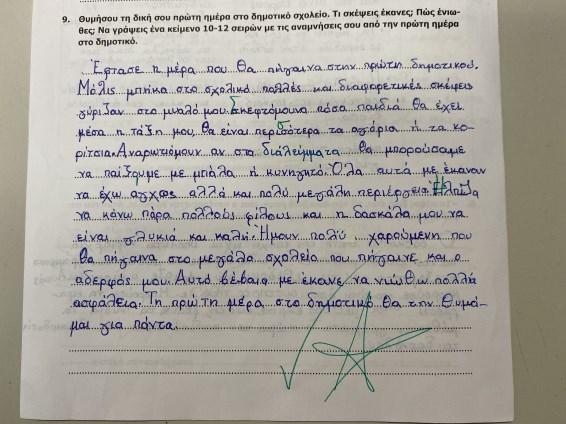 9. Θυμήσου τη δική σου πρώτη ημέρα στο δημοτικό σχολείο. Τι σκέψεις έκανες; Πώς ένιω-
θες; Να γράψεις ένα κείμενο 10-12 σειρών με τις αναμνήσεις σου από την πρώτη ημέρα
στο δημοτικό.
Έφτασε η μέρα που θα πήγαινα στην πρώτη δημοτικού.
Μόλις μπήκα στο σχολικό πολλές και διαφορετικές σκέψεις
γύριζαν στο μυαλό μου. Σκεφτόμουνα πόσα παιδιά θα έχει
μέσα η τάξη μου, θα είναι περισσότερα τα αγόρια ή τα κο-
ρίτσια. Αναρωτιόμουν αν στο διάλειμματα θα μπορούσαμε
να παίξουμε με μπάλα ή κυνηγητό. Όλα αυτά με έκαναν
να έχω άγχος αλλά και πολύ μεγάλη περιέργεια. Ήλπιζα
να κάνω πάρα πολλούς φίλους και η δασκάλα μου να
είναι γλυκιά και καλή. Ήμουν πολύ χαρούμενη που
θα πήγαινα στο μεγάλο σχολείο που πήγαινε και ο
αδερφός μου. Αυτό βέβαια με έκανε να νιώθω πολλή
ασφάλεια. Τη πρώτη μέρα στο δημοτικό θα την θυμά-
μαι για πάντα.